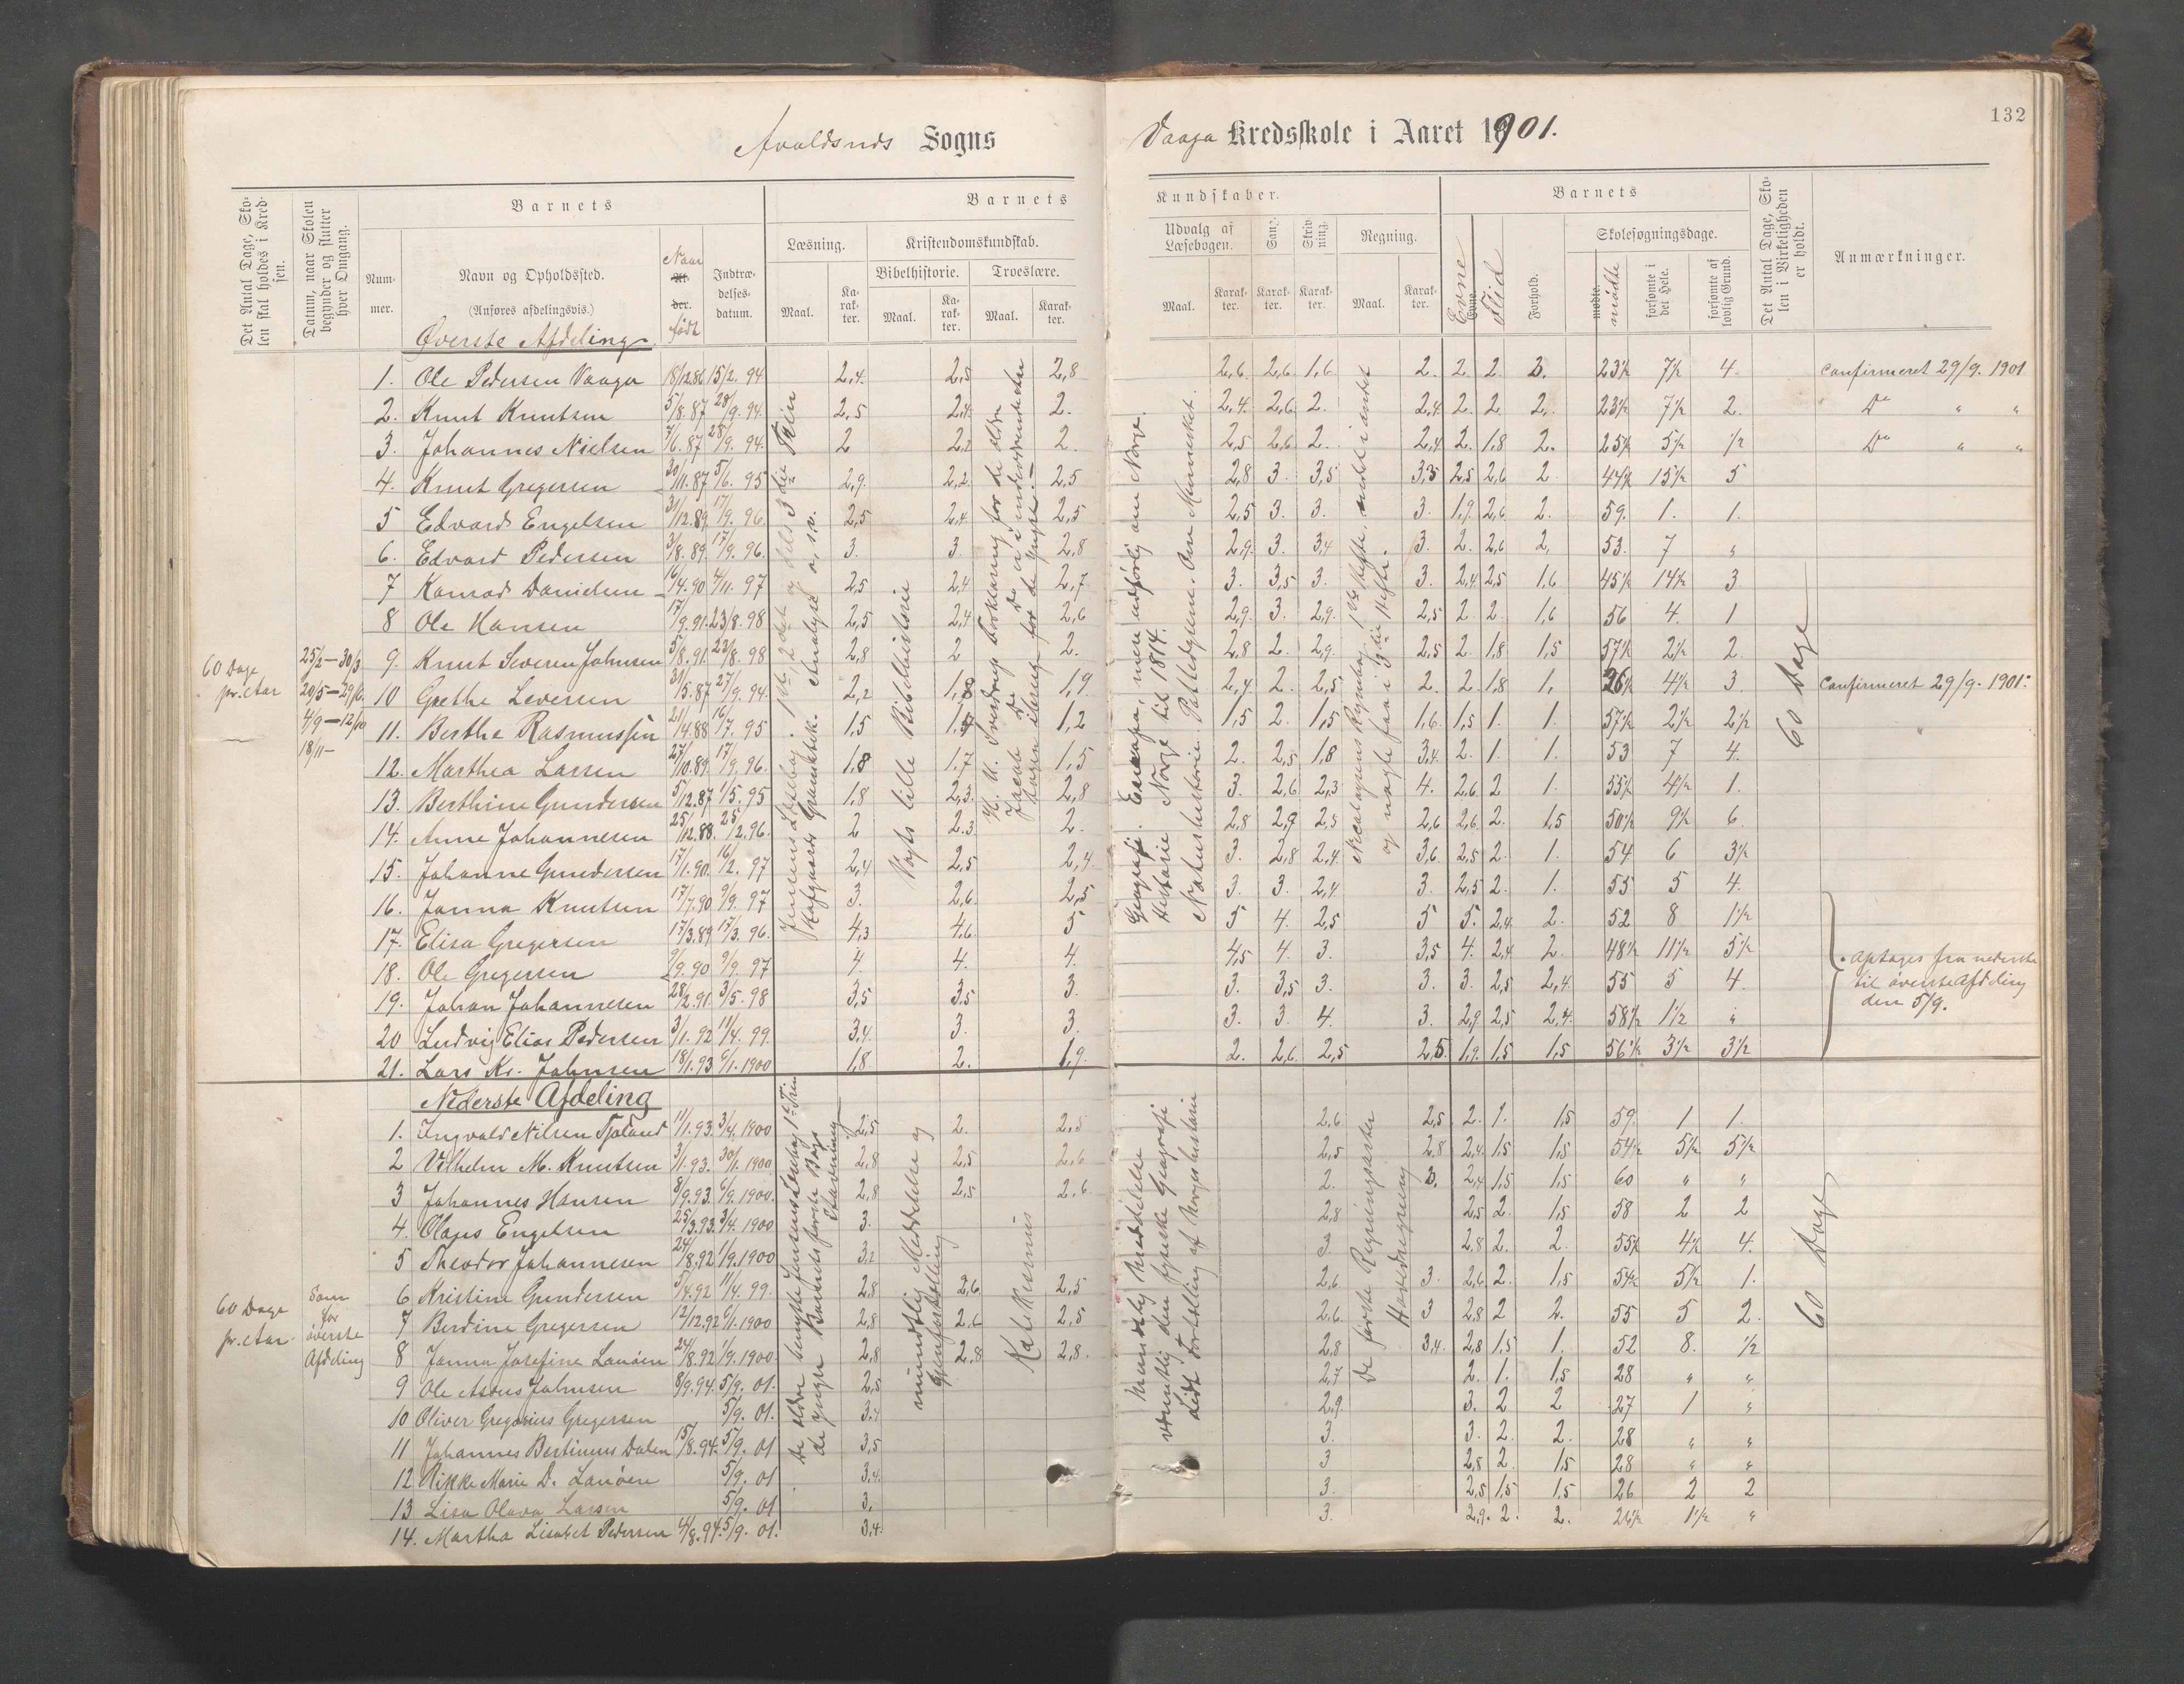 132
Avaldsnds Sogns
Vaaga Kredsskole i Aaret 1901.
Det Antal Dage, Skolen skal holdes i Kredsen.
Datum, naar Skolen begynder og slutter hver Omgang.
Barnets
Nummer.
Navn og Opholdssted.
(Anføres afdelingsvis.)
Naar født
Indtrædelsesdatum.
Barnets
Læsning.
Maal.
Karakter.
Kristendomskundskab.
Bibelhistorie.
Maal.
Karakter.
Troeslære.
Maal.
Karakter.
Kundskaber.
Udvalg af Læsebogen.
Maal.
Karakter.
Sang.
Karakter.
Skrivning.
Karakter.
Regning.
Maal.
Karakter.
Barnets
Evne
Flid
Forhold.
Skolesøgningsdage.
mødte
forsømte i det Hele.
forsømte af lovlig Grund.
Det Antal Dage, Skolen i Virkeligheden er holdt.
Anmærkninger.
Øverste Afdeling
1. Ole Pedersen Vaaga 18/12.86 15/2. 94 2,4. 2,5 2,8 2,6. 2,6 1,6. 2. 2. 2. 2. 23½ 7½ 4 Confirmeret 29/9. 1901
2. Knut Knutsen 5/8.87 28/9. 94. 2,5 2,4. 2. 2,4. 2,6 2. 2,4. 2. 2. 2. 23½ 7½ 2. Do " "
3. Johannes Nielsen 7/6.87 28/9. 94. 2 2,2 2. 2,5 2,6 2. 2,4 2. 1,8 2. 25½ 5½ ½ Do " "
4. Knut Gregersen 30/11.87 5/6. 95 2,9. 2,2. 2,5 2,8 3. 3,5 3,5 2,5 2,6 2 44½ 15½ 5
5 Edvard Engelsen 31/12.89. 17/9. 96. 2,5 2,4 2,5 2,5 3. 3. 3. 1,9. 2,6 2. 59. 1. 1.
6. Edvard Pedersen 3/8.89. 17/9. 96. 3. 3. 2,8 2,9. 3. 3,4 3. 2. 2,6 2, 53. 7 "
7 Konrad Danielsen 16/4.90 4/11. 97 2,5 2,4 2,7 3. 3,5 3. 3. 2,4 2,5 1,6 45½ 14½ 3
8 Ole Hansen 17/9.91. 23/8. 98 2,5 2,4 2,6 2,9. 3. 2,9. 2,5 2 2. 1,6 56 4. 1
9. Knut Severen Johnsen 5/8.91. 23/8. 98 2,8 2 2. 2,8 2. 2,9 2,5 2. 1,8 1,5 57½ 2½ 2.
10 Grethe Leversen 31/5.87 27/9. 94. 2,2 1,8 1,9 2,4 2. 2,5 2. 2. 1,8 1, 26½ 4½ 3 Confirmeret 29/9. 1901.
11. Berthe Rasmussen 21/9.88 16/7. 95 1,5 1,5 1,2 1,5 2. 1,5 1,6. 1,5 1. 1. 57½ 2½ 2½ "
12. Marthea Larsen 27/10.89. 17/9. 96. 1,8 1,7 1,5 2. 2,5 1,8 3,4. 2. 1. 1. 53 7 4.
13. Berthine Gundersen 5/12.87 1/5. 95 1,8 2,3. 2,8 3. 2,6 2,3 4. 2,6 2 1. 55½ 4½ 1.
14. Anne Johannesen 25/12.88. 25/2. 96. 2 2.3 2. 2,8 2,9 2,5 2,6 2,6. 2. 1,5 50½ 9½ 6.
15. Johanne Gundersen 17/1.90. 16/2. 97 2,4 2,5 2,4 3. 2,8 2,4. 3,6. 2,5 2. 1. 54 6 3½
16. Janna Knutsen 17/7.90 9/9. 97 3. 2,6 2,5 3. 3. 2,4 3. 2,5 2. 1. 55 5 4.
17. Elisa Gregersen 17/3.89 17/3. 96. 4,3 4,6. 5 5 4. 2,5 5 5. 2,4. 2. 52 8 1½
18. Ole Gregersen 9/9.90 9/9. 97 4. 4. 4. 4,5 4. 3. 3,5 4. 2,4 2. 48½ 11½ 5½
19. Johan Johannesen 28/2.91. 3/5. 98 3,5 3,5 3. 3. 3,5 3. 3. 3. 2,5 2,4. 55 5 4.
20 Ludvig Elias Pedersen 3/1. 92 11/4. 99. 3,4. 3. 3. 3. 3. 4. 3. 2,9 2,5 2,4. 58½ 1½ "
21. Lars Kr. Johnsen 18/1.93 6/1.1900 1,8. 2. 1,9. 2. 2,6. 2,5 2,5. 1,9. 1,5 1,5 56½ 3½ 3½
60 Dage
pr. Aar
25/2 — 30/3
4/9 — 12/10
18/11 —
Jensens Læsebog. 1ste, 2det og dels 3die Trin
Hofgaards Grammatik. Analyse o.s.v.
Vogts lille Bibelhistorie
H. U. Sverdrups Forklaring for de ældre
Geografi. Europa, mere udførlig om Norge.
Historie Norge til 1814.
Naturhistorie. Pattedyrene. Om Mennesket.
og nogle faa i 3die Hefte.
60 Dage
optages fra nederste
til øverste Afdeling
den 5/9.
Nederste Afdeling
1. Ingvald Nilsen Tjøland 11/1.93. 3/4. 1900 2,5 2. 2,5 2,6 2,5 2. 1. 1,5 59. 1 1.
2 Vilhelm M. Knutsen 3/1.93. 30/1. 1900 2,8 2,5 2,6 2,5 2,8 2,4 1,5 1,5 54½ 5½ 5½
3 Johannes Hansen 8/9.93. 6/9.1900. 2,8 2,5 2,6. 2. 3. 2,4 1,5 1,5 60 " "
4. Olaus Engelsen 25/3.93. 3/4. 1900 3. 2,8 2,5 2. 1,5 58 2 2
5 Theodor Johannesen 24/8.92 1/9.1900 3,2 3. 2,8 2. 2. 55½ 4½ 4.
6 Kristine Gundersen 5/4.92 11/4. 99. 2,8 2,6 2,5 2,6. 3. 2,6. 2. 1,5 54½ 5½ 1.
7 Berdine Gregersen 12/12.92 6/1.1900 2,8 2,6 2,5 2,6. 3 2,8 2 2. 55 5 2.
8 Janna Josefine Lanøen 24/8.92 1/9.1900. 2,8 2,8 2,8. 2,8 3,4. 2,8 1,5 1. 52 8. ½
9 Ole Asbus Johnsen 8/9.94. 5/9. 01. 2,5 2,7 2. 1. 1,5 28 " "
10 Oliver Gregorius Gregersen 5/9. 01. 3,4 2,9. 3. 2 2 27 1 "
11 Johannes Bertinus Dalen 15/8.94. 5/9. 01 3,5 3. 3. 2. 2. 28 " "
12 Rikke Marie D. Lanøen 5/9. 01 3,4. 3 2,5 2. 1,5 28 " "
13 Lisa Olava Larsen 5/9. 01 3. 3. 2,5 1,5 1,5 26 2 2
14. Martha Lisabet Pedersen 4/8.94. 5/9. 01. 3,4. 3. 2,9. 2. 2. 26½ 1½ "
60 Dage
pr. Aar
Som
for
øverste
Afdeling
De ældre benytte Jensens Læsebog 1ste Trin
de yngre Barnets første Bog
Stavning
mundtlig Meddelelse og
Gjenfortælling
Katekismus
Mundtlig Meddelelse
væsentlig den fysiske Geografi
Lidt Fortælling af Norgeshistorie
De første Regningsarter
Hovedregning
60 Dage